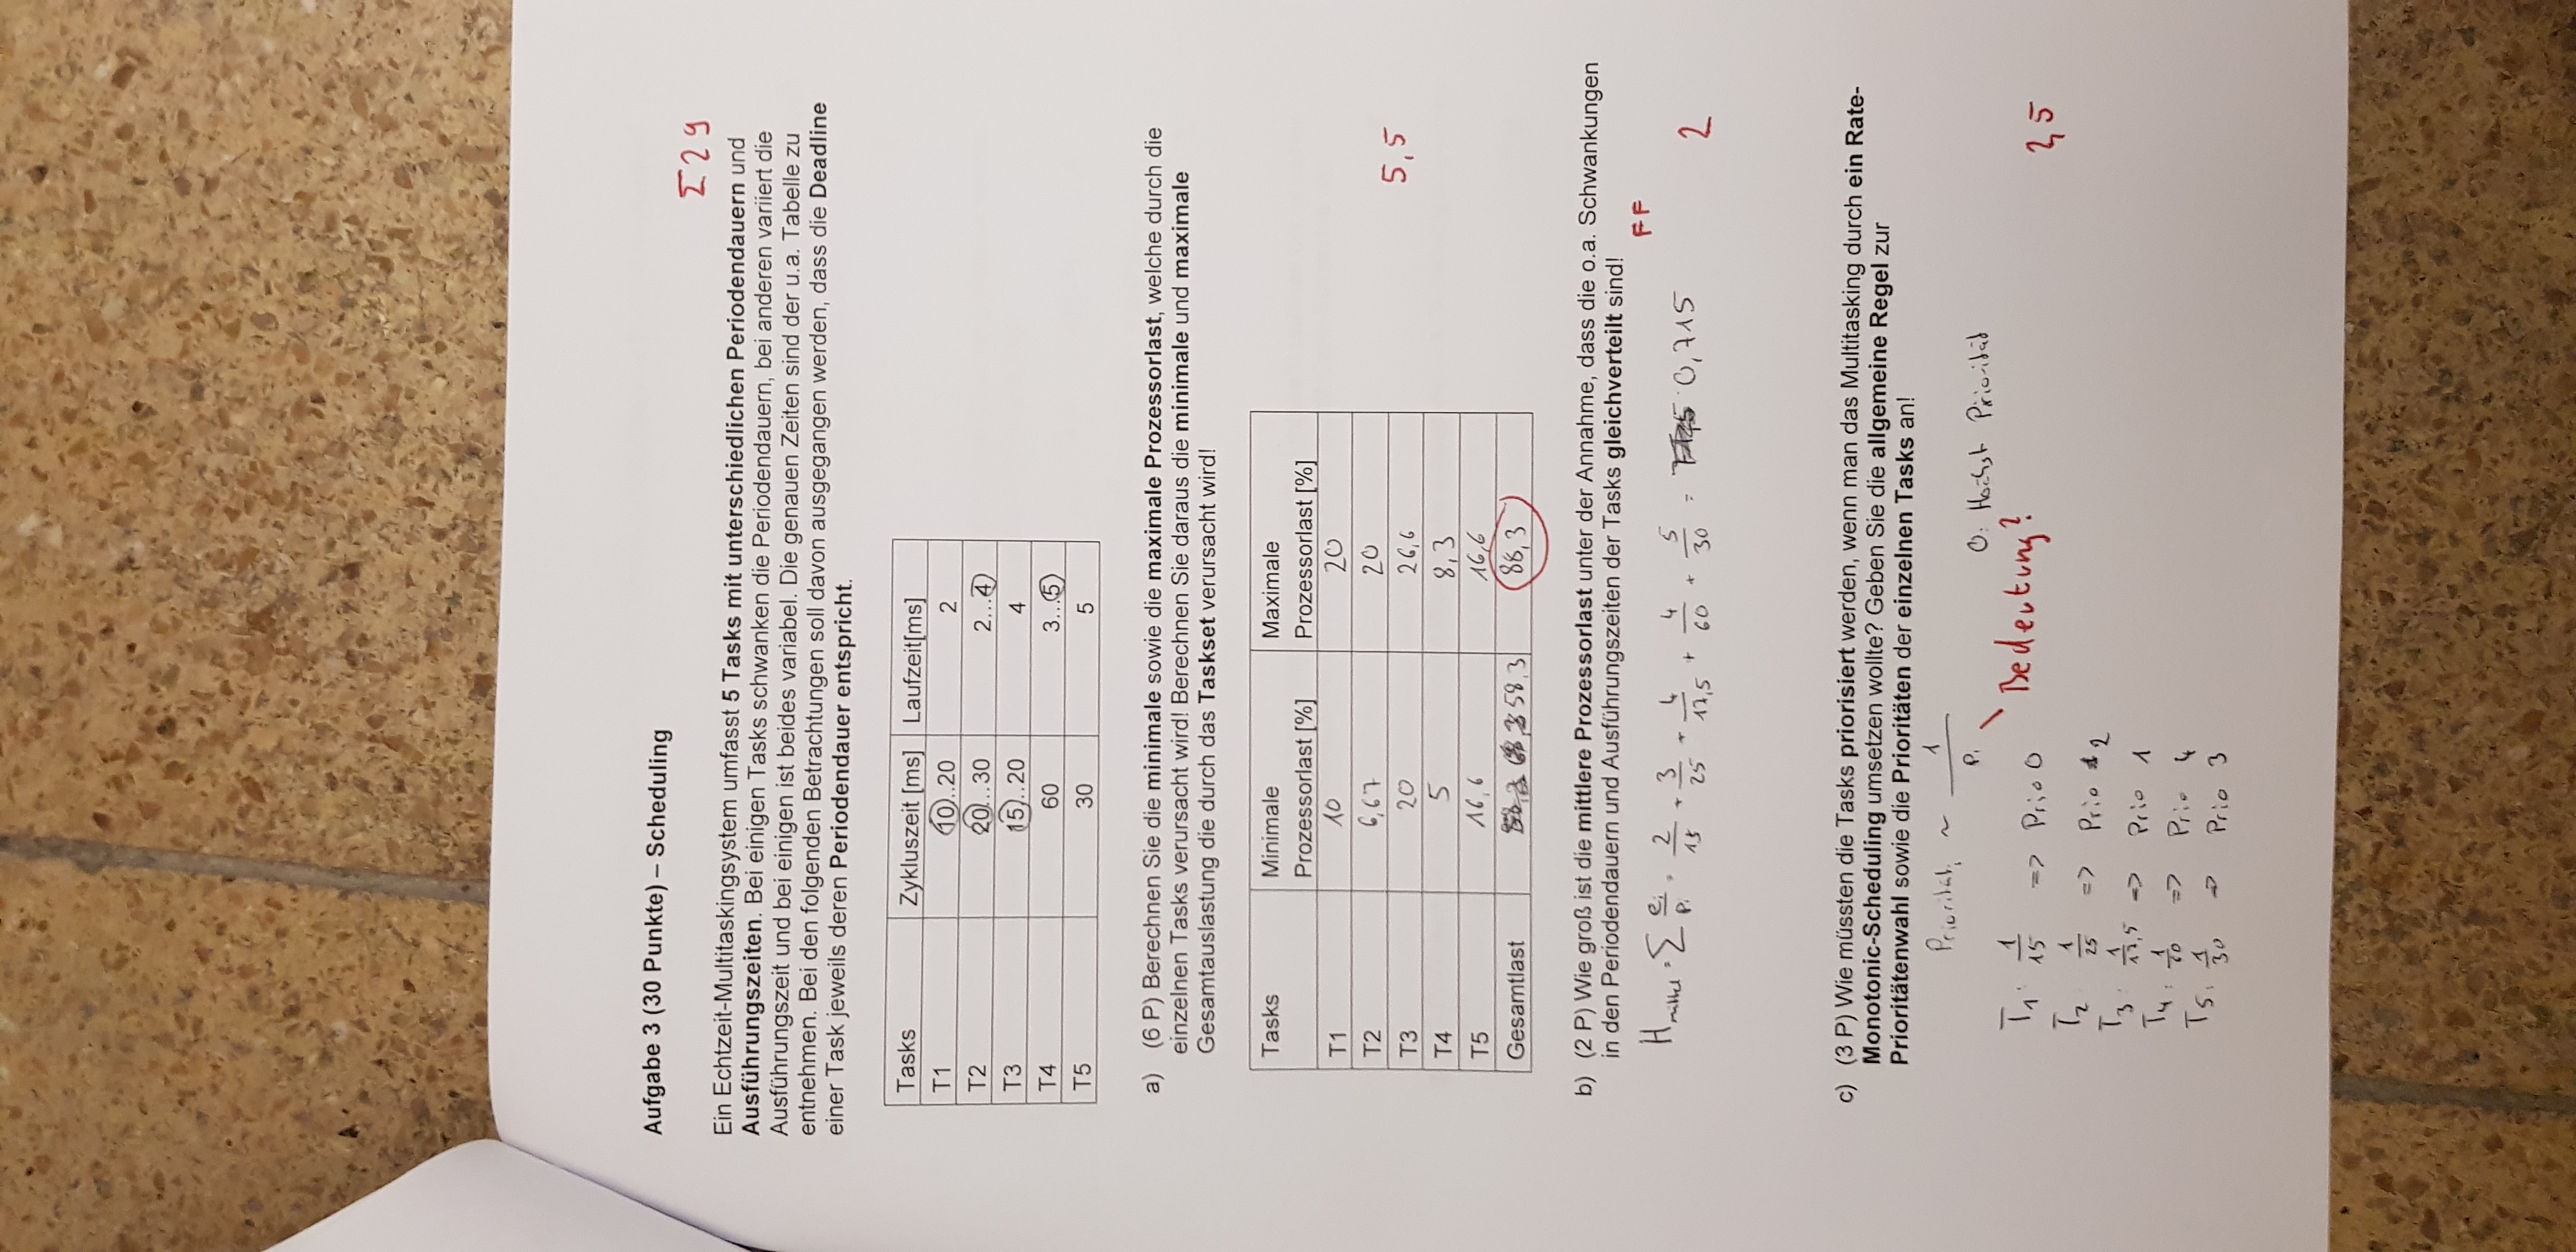 Aufgabe 3 (30 Punkte) – Scheduling
Σ 29
Ein Echtzeit-Multitaskingsystem umfasst 5 Tasks mit unterschiedlichen Periodendauern und
Ausführungszeiten. Bei einigen Tasks schwanken die Periodendauern, bei anderen variiert die
Ausführungszeit und bei einigen ist beides variabel. Die genauen Zeiten sind der u.a. Tabelle zu
entnehmen. Bei den folgenden Betrachtungen soll davon ausgegangen werden, dass die Deadline
einer Task jeweils deren Periodendauer entspricht.
Tasks Zykluszeit [ms] Laufzeit[ms]
T1 10...20 2
T2 20...30 2...4
T3 15...20 4
T4 60 3...5
T5 30 5
a) (6 P) Berechnen Sie die minimale sowie die maximale Prozessorlast, welche durch die
einzelnen Tasks verursacht wird! Berechnen Sie daraus die minimale und maximale
Gesamtauslastung die durch das Taskset verursacht wird!
Tasks Minimale Maximale
Prozessorlast [%] Prozessorlast [%]
T1 10 20
T2 6,67 20
T3 20 26,6
5,5
T4 5 8,3
T5 16,6 16,6
Gesamtlast 58,3 88,3
b) (2 P) Wie groß ist die mittlere Prozessorlast unter der Annahme, dass die o.a. Schwankungen
in den Periodendauern und Ausführungszeiten der Tasks gleichverteilt sind!
FF
H mittel = Σ ei/pi = 2/15 + 3/25 + 4/17,5 + 4/60 + 5/30 = 0,715
2
c) (3 P) Wie müssten die Tasks priorisiert werden, wenn man das Multitasking durch ein Rate-
Monotonic-Scheduling umsetzen wollte? Geben Sie die allgemeine Regel zur
Prioritätenwahl sowie die Prioritäten der einzelnen Tasks an!
Priorität i ~ 1/pi
0: Höchst Priorität
Bedeutung?
T1: 1/15 => Prio 0
2,5
T2 1/25 => Prio 2
T3: 1/17,5 => Prio 1
T4: 1/60 => Prio 4
T5: 1/30 => Prio 3